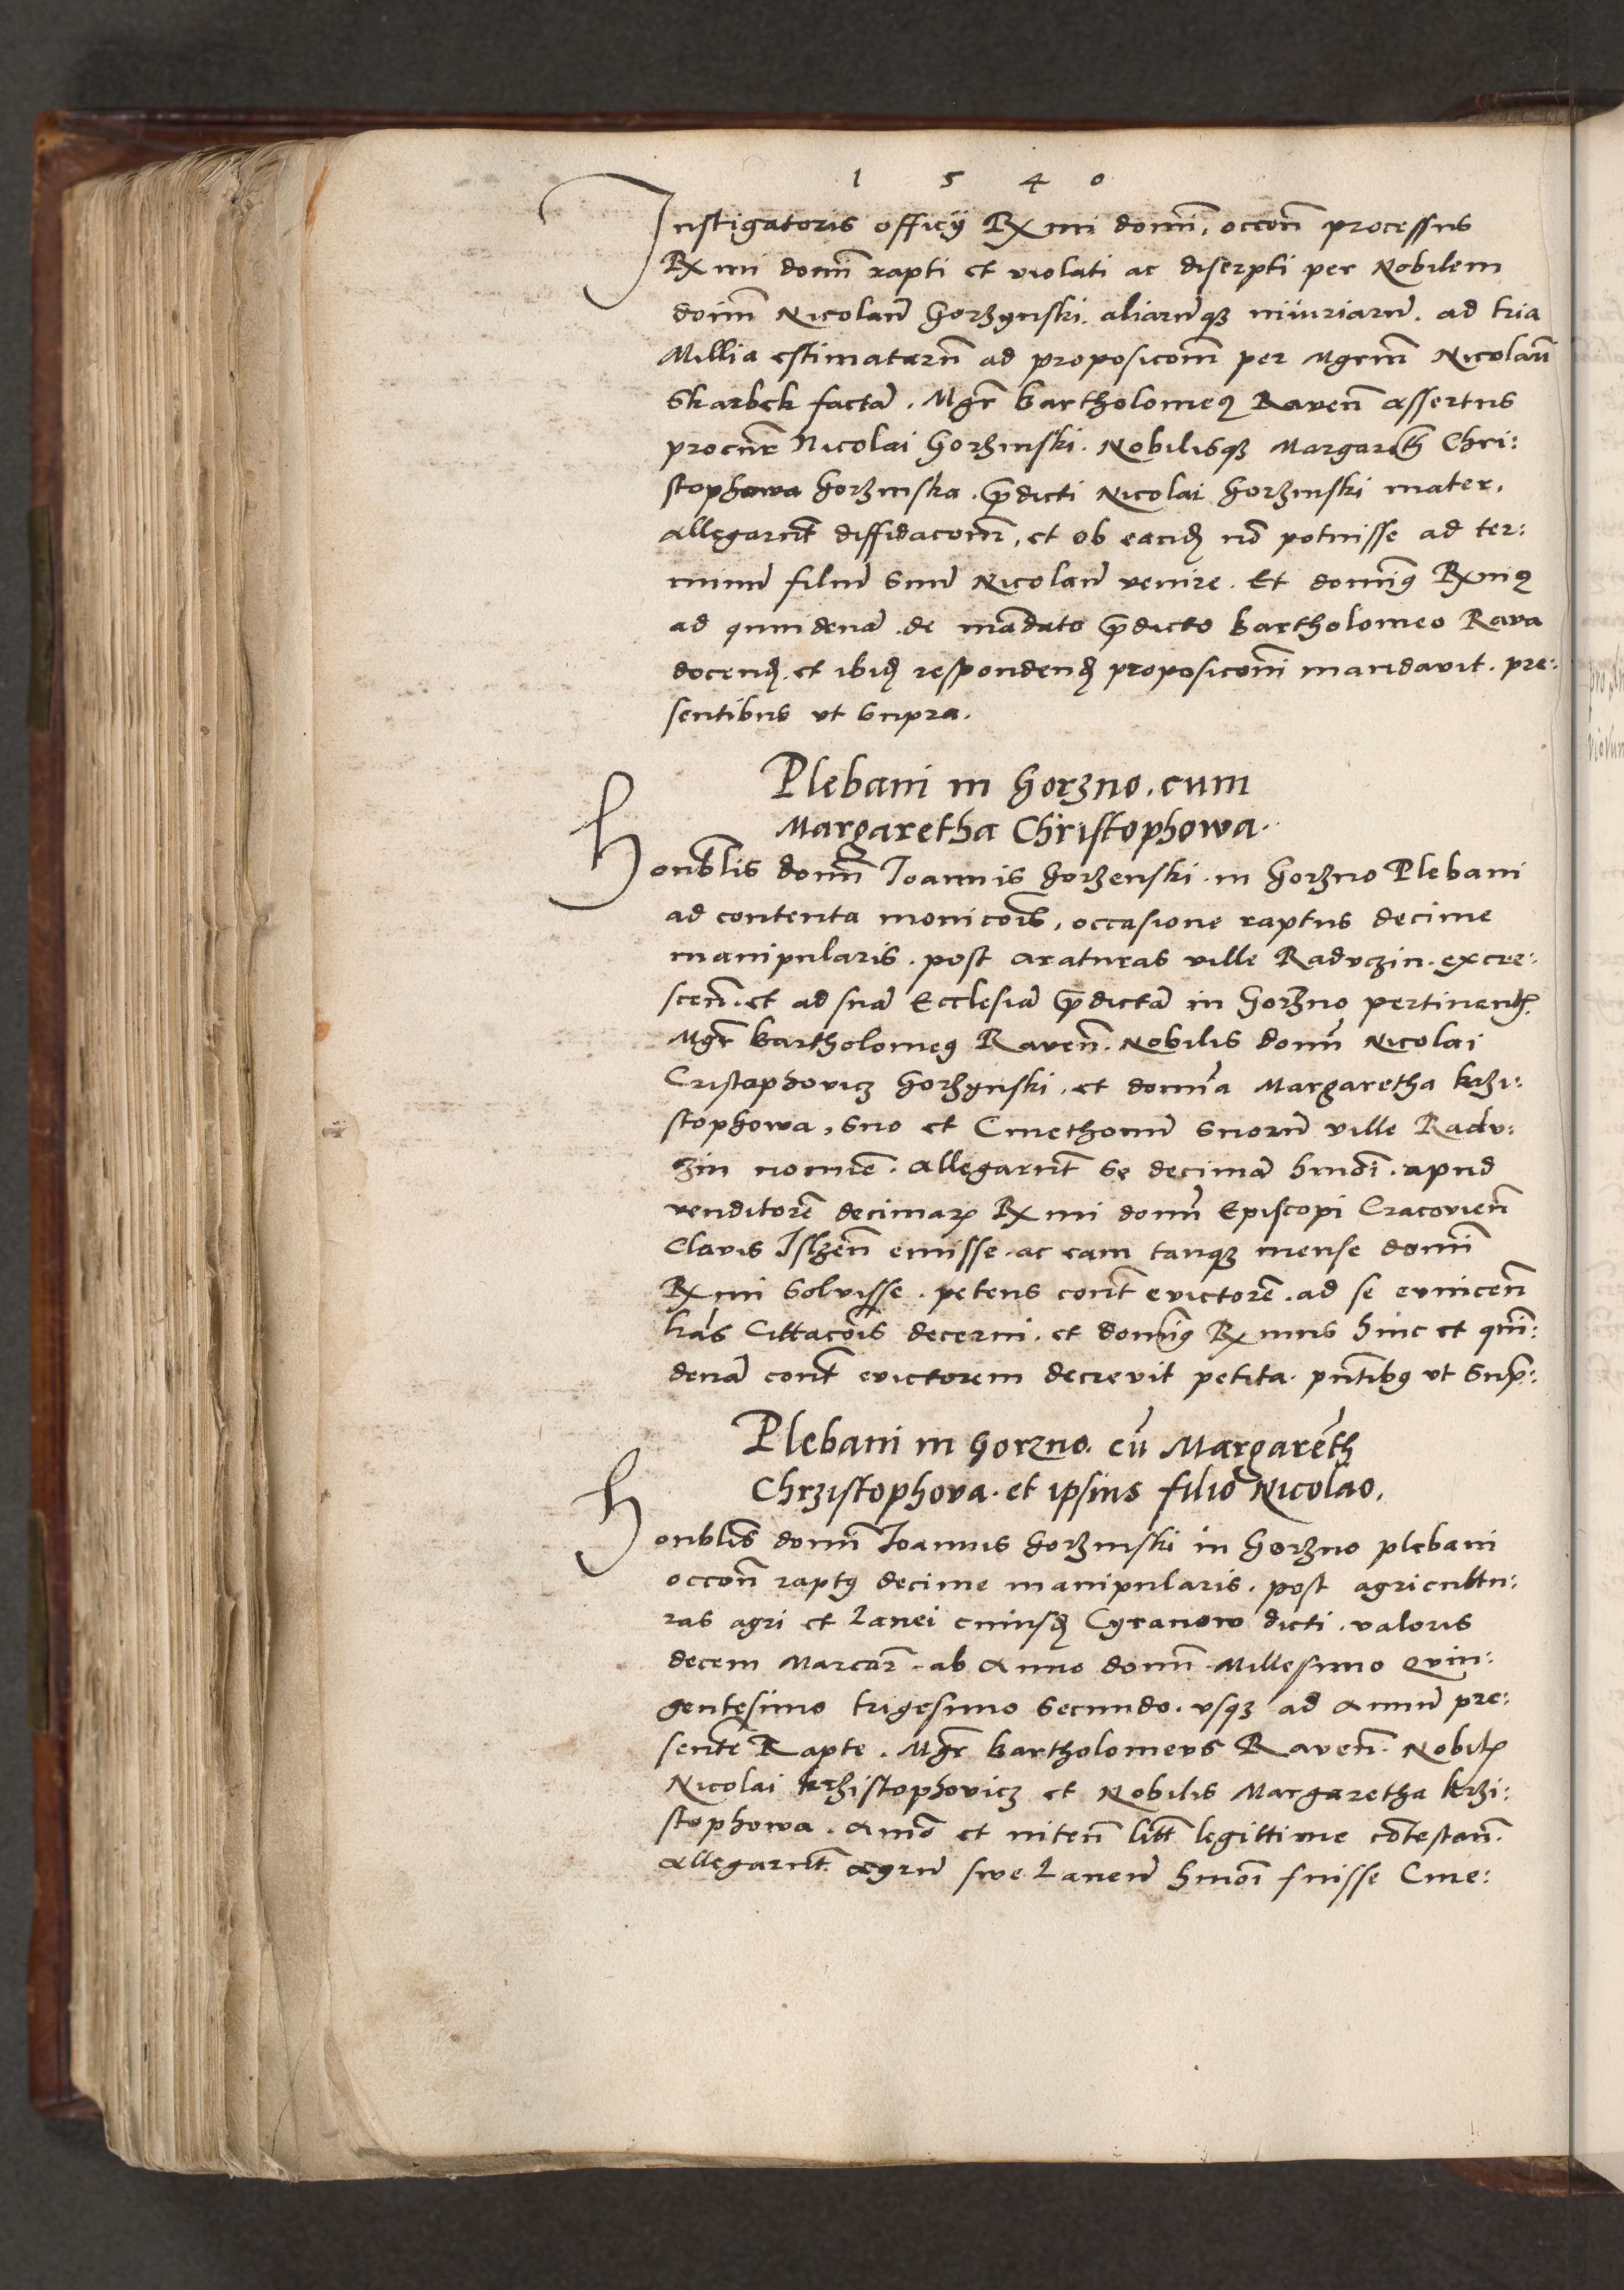 1 5 4 0
Instigatoris officij Rx mi domi͂. occon͂ processus
Rx mi domi͂ rapti et violati ac diserpti per Nobilem
domi͂ Nicolau͂ Gorzynski. aliaru͂qꝫ iniuriaru͂. ad tria
Millia estimataru͂ ad proposicom͂ per Mgrm͂ Nicolau͂
Skarbek facta͂. Mgr͂ Bartholomeꝰ Raven͂ assertus
procur͂ Nicolai Gorzinski. Nobilisqꝫ Margareth͂ Chri:
stophowa Gorzinska. p͂dicti Nicolai Gorzinski mater.
allegarnt͂ diffidacom͂, et ob eandꝫ no͂ potuisse ad ter:
minu͂ filiu͂ suu͂ Nicolau͂ venire. Et domi͂ꝰ Rxmꝰ
ad quindena͂. de ma͂dato p͂dicto Bartholomeo Rava
docendꝫ. et ibidꝫ respondendꝫ proposicom͂ mandavit. pre:
sentibus ut supra.
Plebani in Gorzno. cum
Margaretha Christophowa.
Honb͂lis domi͂ Joannis Gorzenski. in Gorzno Plebani
ad contenta monico͂is, occasione raptus decime
manipularis. post araturas ville Raduczin. excre:
scen͂. et ad sua͂ Ecclesia͂ p͂dicta͂ in Gorzno pertinentꝫ.
Mgr͂ Bartholomeꝰ Raven͂. Nobilis domi͂ Nicolai
Cristophovicz Gorzynski. et domi͂a Margaretha krzi:
stophowa, suo et Cmethonu͂ suoru͂ ville Radu:
zin nomi͂e. allegarnt͂ se decima͂ hmo͂i. apud
venditore͂ decimarꝫ Rx mi domi͂ Episcopi Cracovien͂
Clavis Ilzen͂ emisse. ac eam tanqꝫ mense domi͂
Rx mi solvisse. petens cont͂ evictore͂. ad se evincen͂
has Cittaco͂is decerni. et domi͂ꝰ Rx mus hinc et qui͂:
dena͂ cont͂ evictorem decrevit petita. pn͂tibꝰ ut sup͂:.
Plebani in Gorzno. cu͂ Margare͂th
Chrzistophova. et ipsius filio Nicolao.
Honblis͂ domi͂ Joannis Gorzinski in Gorzno plebani
occon͂ raptꝰ decime manipularis. post agricultu:
ras agri et Lanei cuiusdꝫ Cyranow dicti. valoris
decem Marcar͂. ab Anno domi͂. Millesimo Quin:
gentesimo trigesimo secundo. usqꝫ ad Annu͂ pre:
sente͂ Rapte. Mgr͂ Bartholomeus Raven͂. Nobilꝫ
Nicolai krzistophovicz et Nobilis Margaretha krzi:
stophowa. Animo͂ et niten͂ litt͂ legittime co͂testan͂.
allegarnt͂. agru͂ sive Laneu͂ hmo͂i fuisse Cme: